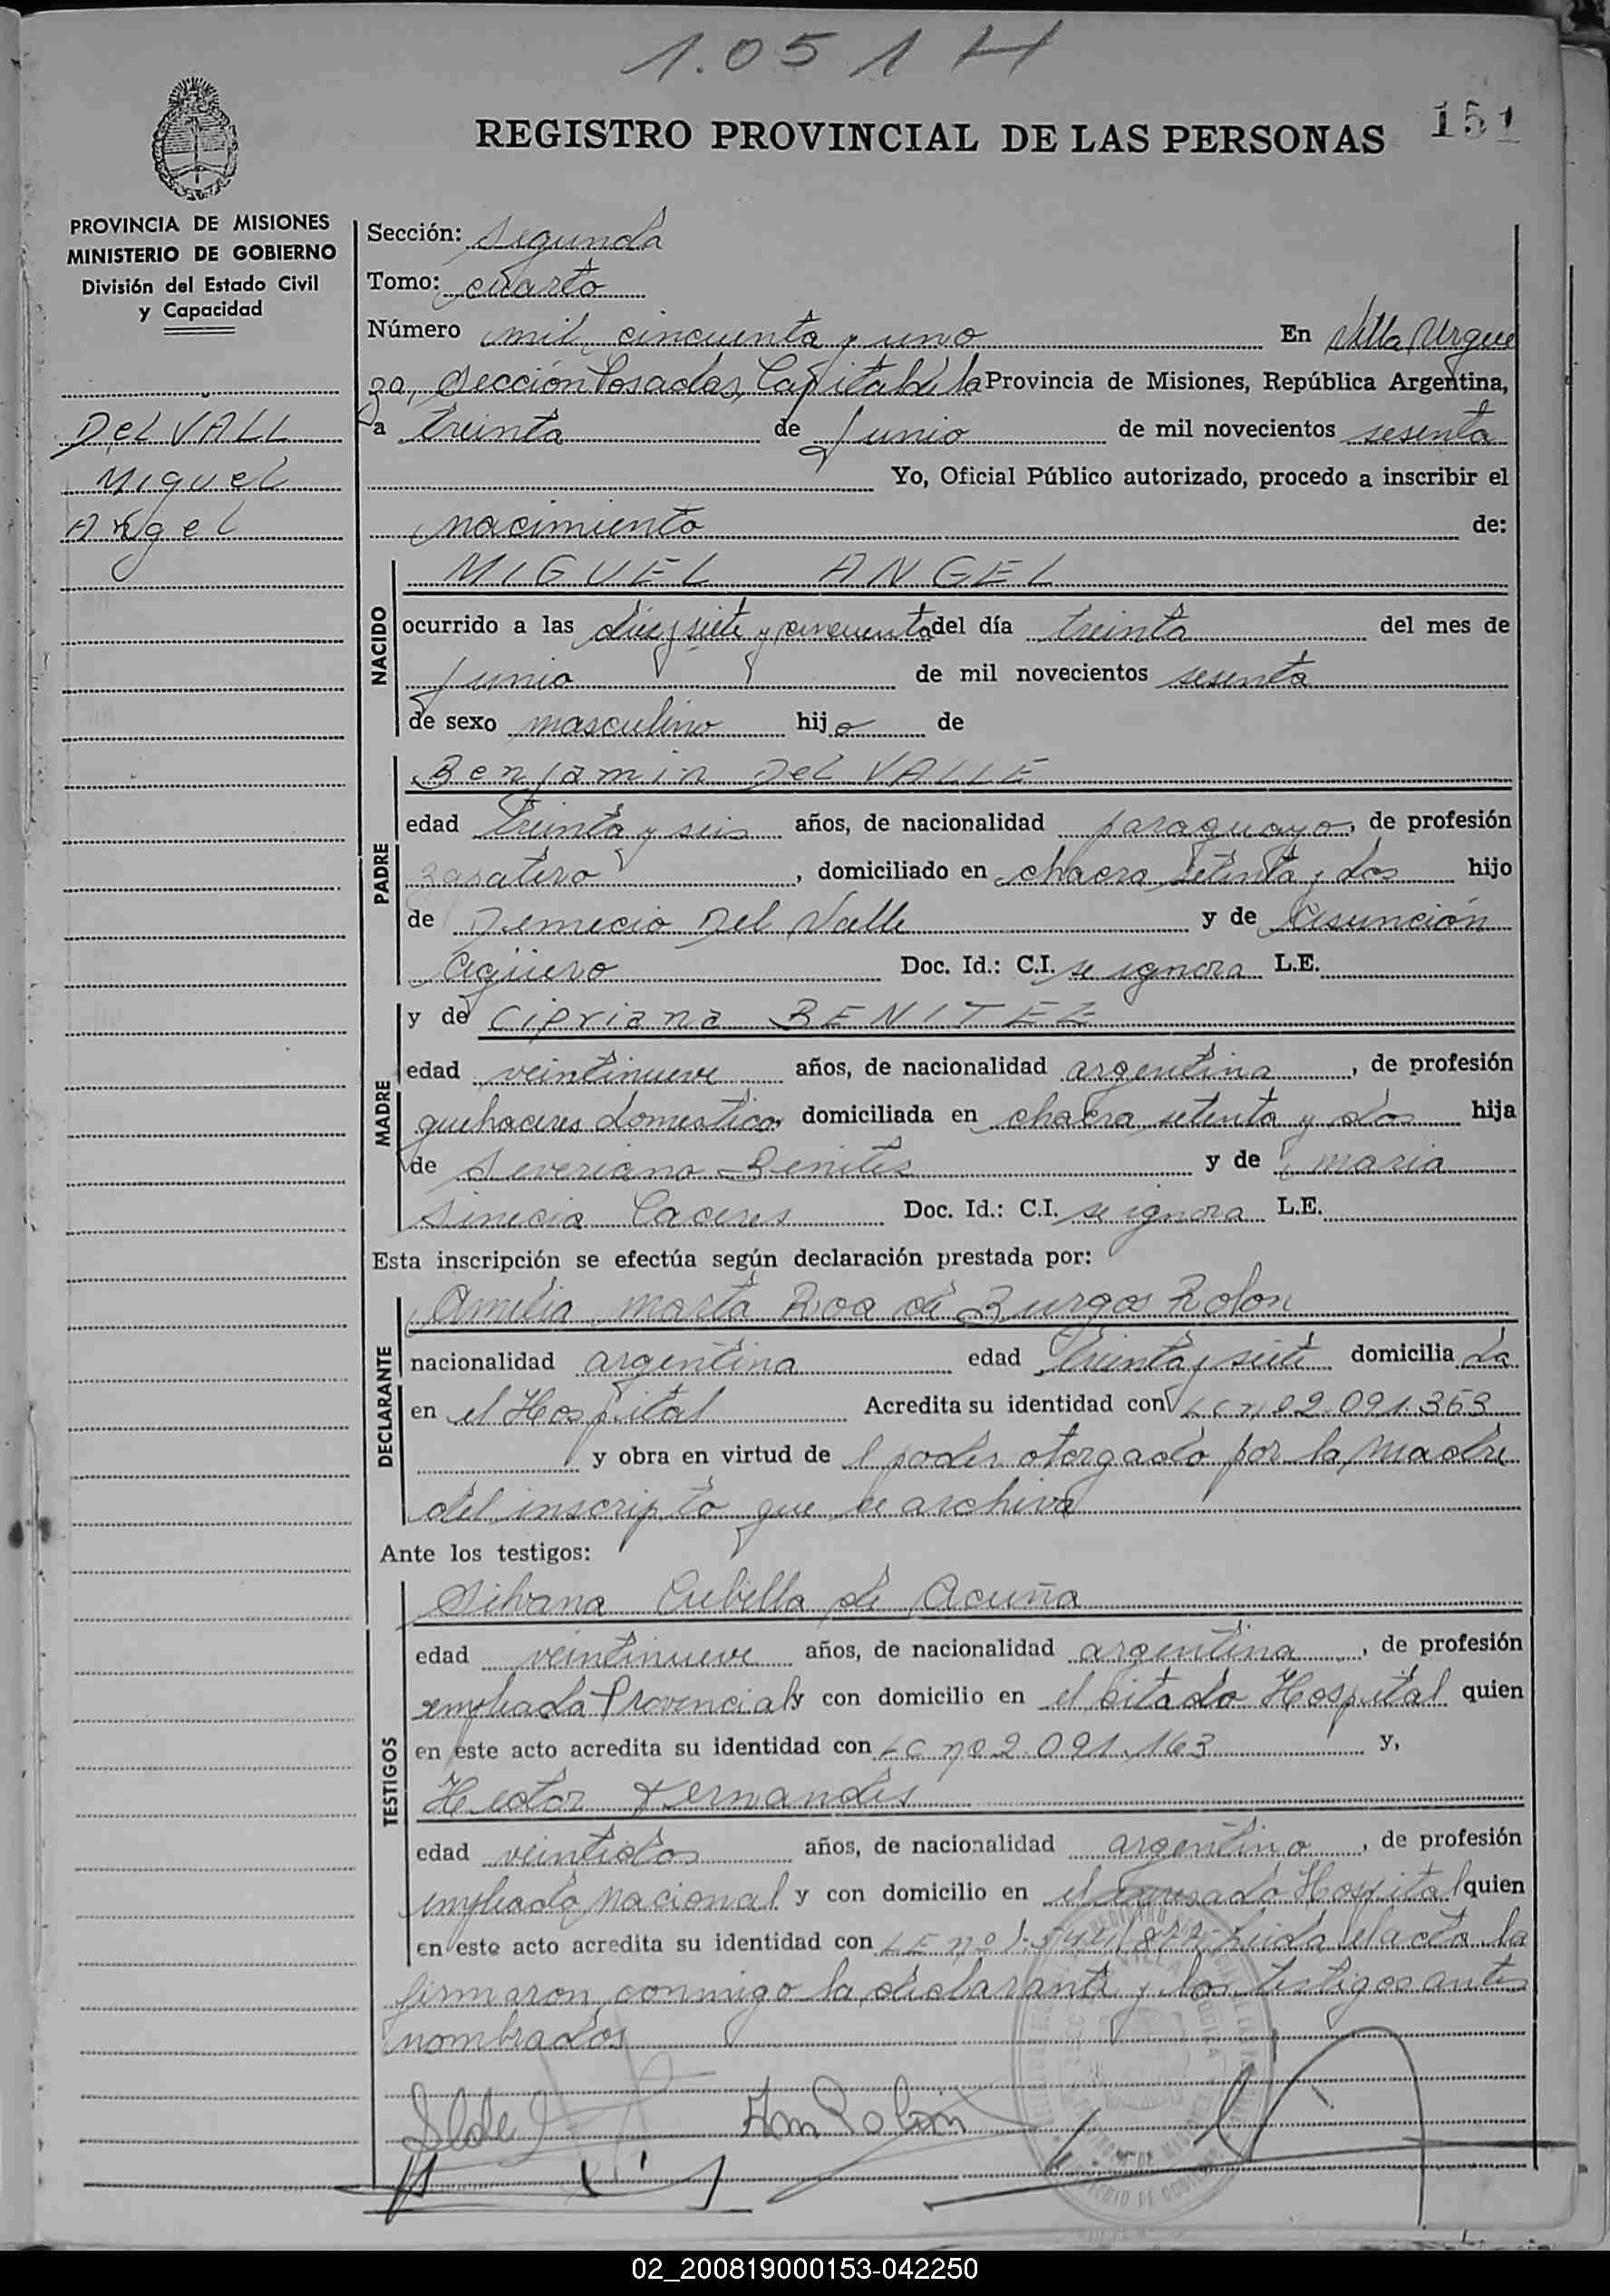 1.051 H
151
REGISTRO PROVINCIAL DE LAS PERSONAS
PROVINCIA DE MISIONES
MINISTERIO DE GOBIERNO
División del Estado Civil
y Capacidad
Del VALL
Miguel
Angel
Sección: Segunda
Tomo: cuarto
Número mil cincuenta y uno En Villa Urqui
za, Sección Posadas, Capital de la Provincia de Misiones, República Argentina,
a treinta de Junio de mil novecientos sesenta
Yo, Oficial Público autorizado, procedo a inscribir el
nacimiento de:
NACIDO
MIGUEL ANGEL
ocurrido a las diez y siete y cincuenta del día treinta del mes de
Junio de mil novecientos sesenta
de sexo masculino hijo de
PADRE
Benjamin Del VALLE
edad treinta y seis años, de nacionalidad paraguayo, de profesión
zapatero, domiciliado en chacra setenta y dos hijo
de Demecio Del Valle y de Asunción
Agüero Doc. Id.: C.I. se ignora L.E.
MADRE
y de Cipriana BENITEZ
edad veintinueve años, de nacionalidad argentina, de profesión
quehaceres domesticos domiciliada en chacra setenta y dos hija
de Severiano Benites y de maria
Sinecia Caceres Doc. Id.: C.I. se ignora L.E.
Esta inscripción se efectúa según declaración prestada por:
DECLARANTE
Amelia Marta Roa de Burgos Rolon
nacionalidad argentina edad treinta y siete domicilia da
en el Hospital Acredita su identidad con LC nº 2.091.353
y obra en virtud de l poder otorgado por la madre
del inscripto que se archiva
Ante los testigos:
TESTIGOS
Silvana Cubilla de Acuña
edad veintinueve años, de nacionalidad argentina, de profesión
empleada Provincial y con domicilio en el citado Hospital quien
en este acto acredita su identidad con LC nº 2.091.163 y,
Hector Fernandes
edad veintidos años, de nacionalidad argentino, de profesión
empleado nacional y con domicilio en el Hospital quien
en este acto acredita su identidad con LE nº Leida el acta la
firmaron conmigo la declarante y los testigos antes
nombrados
02_200819000153-042250